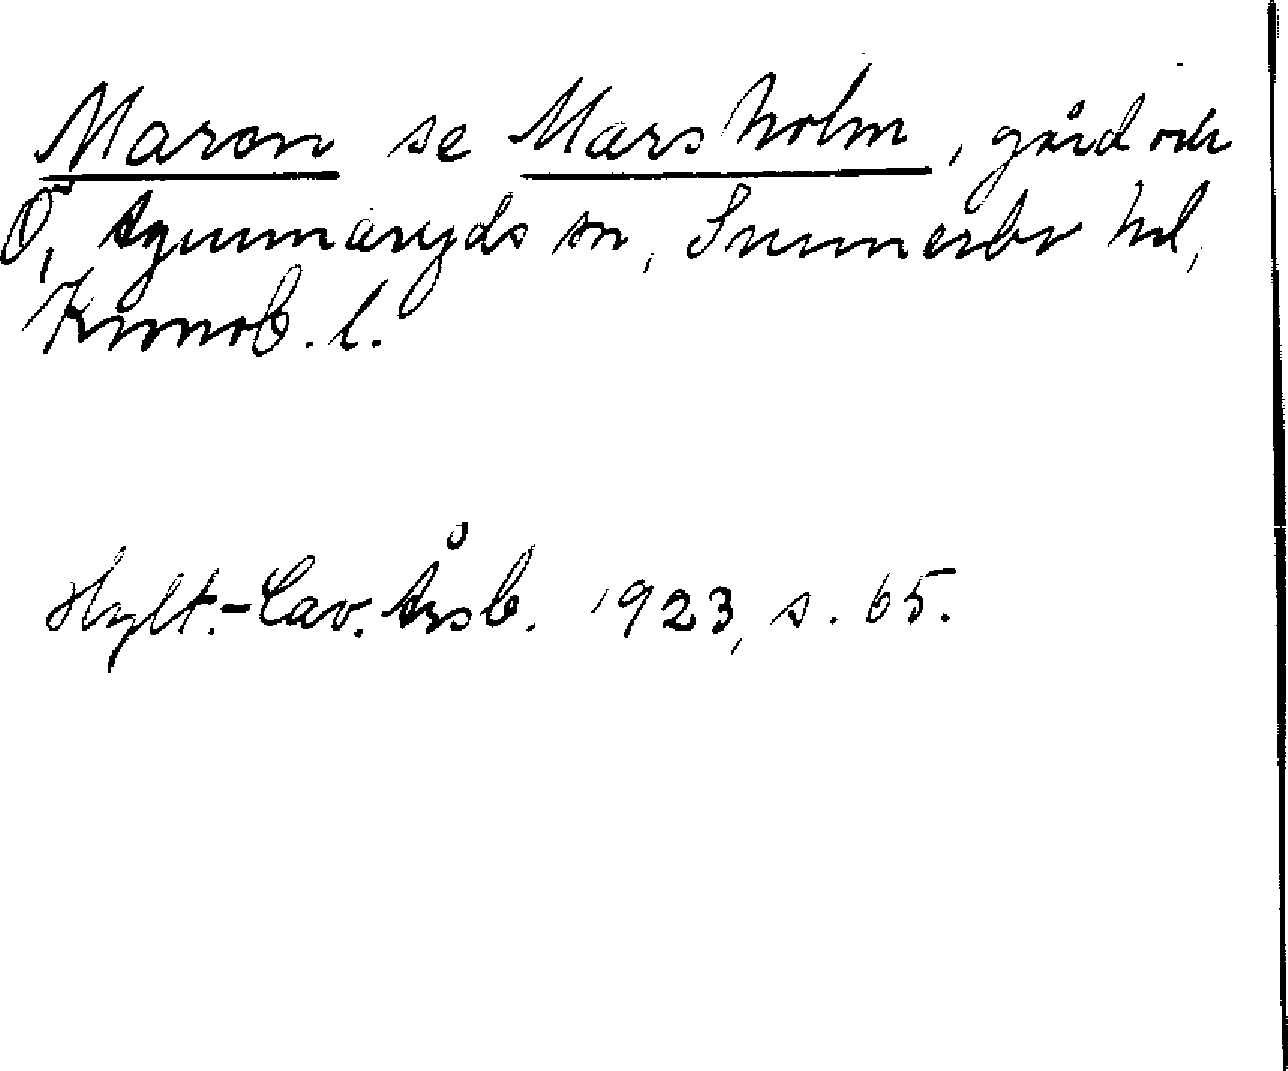 Maron se Marsholm, gård och
Ö, Agunnaryds sn, Sunnerbo hd,
Kronob. l.
Hylt.-Cav. Årsb. 1923, s. 65.